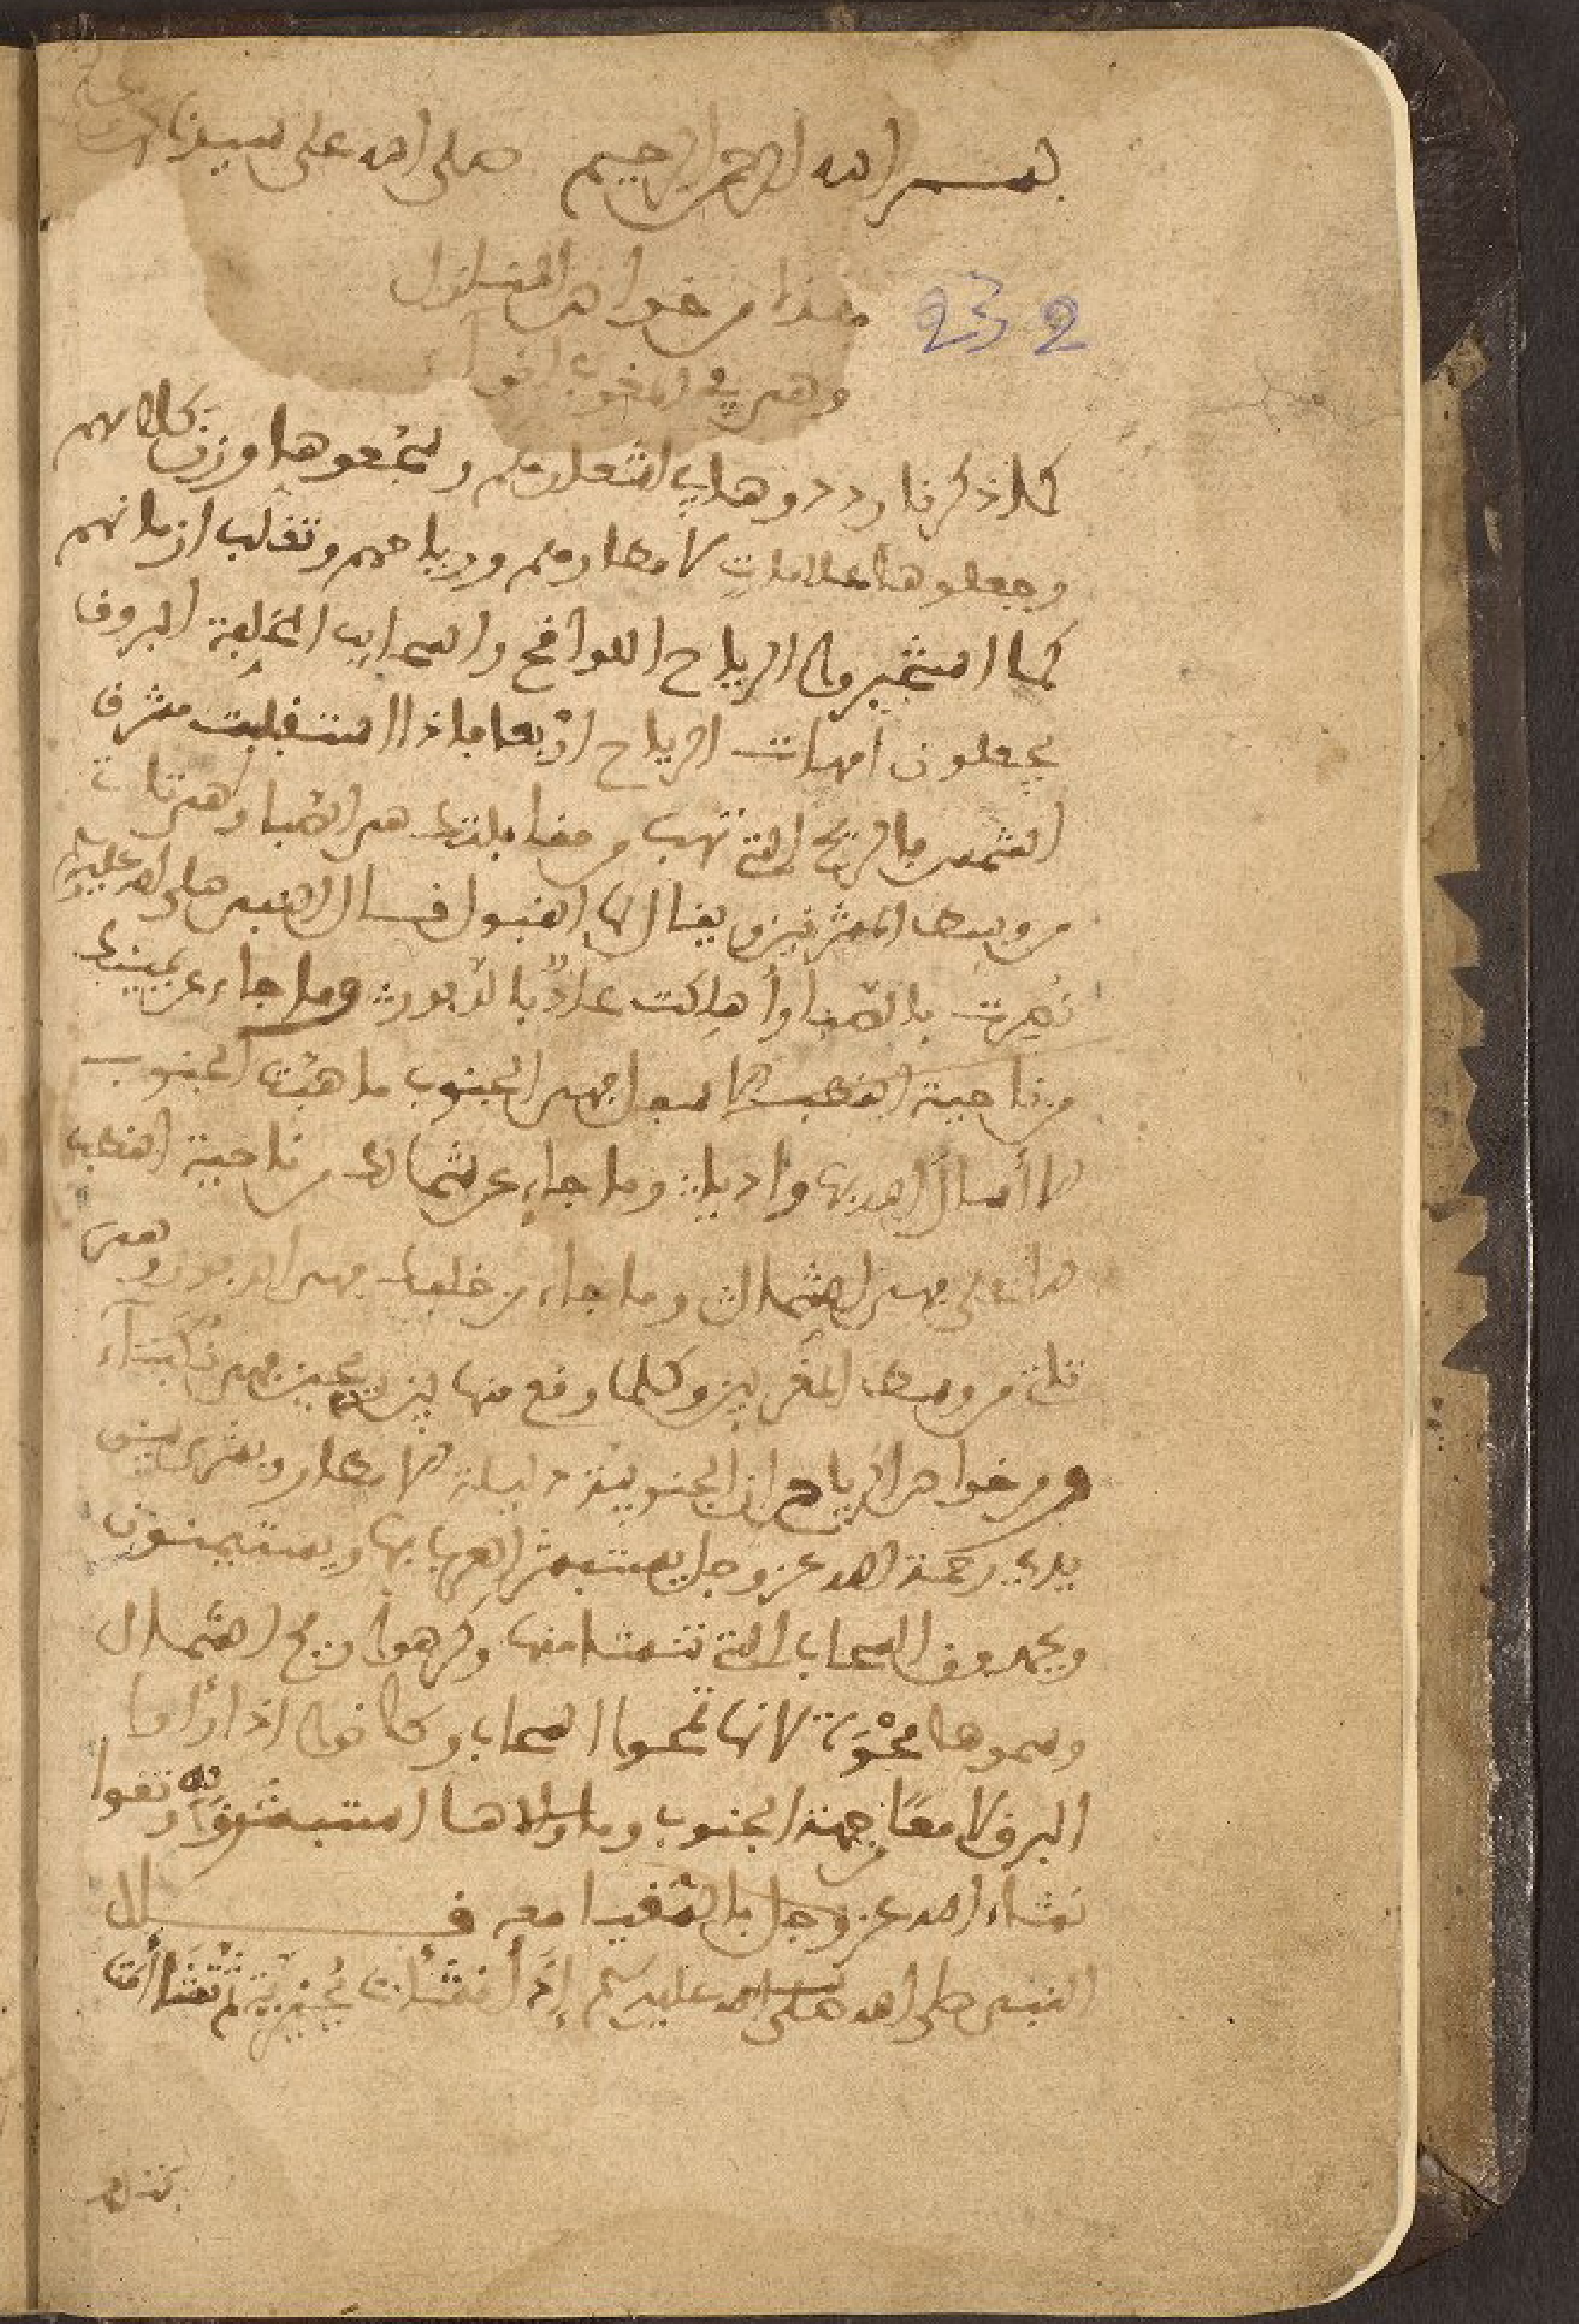 بسم الله الرحمن الرحيم صلى الله على سيدنا
هذا من خواص
وهي في
كما ذكرنا ورددوها في اشعارهم وسجعوها وزن كلامهم
وجعلوها علامات لامطارهم ورياحهم وتقلب ازمانهم
كما استخبروا الرياح اللواقح والسحايب المخلفة البروق
يجعلون امهات الرياح اربعا فاذا استقبلت مشرق
الشمس فالريح التي تهب من مقابلتك هي الصبا وهي تات
من وسط المشرقين ويقال لها القبول قال النبي صلى الله عليه
نصرت بالصبا وأهلكت عاد بالدبور وما جاء عن يمينك
من ناحية القطب الاسفل فهي الجنوب ما هبت الجنوب
الا أسال الله بها واديا وما جاء عن شمالك من ناحية القطب
الاعلى فهي الشمال وما جاء من خلفك فهي الدبور وهي
تات من وسط المغربين وكلما وقع منها بين ريحين فهي نكباء
ومن خواص الرياح ان الجنوبية دليلة الامطار وبشرى بين
يدي رحمة الله عز وجل يستبشر العرب بها ويستيمنون
ويحمدون السحاب التي تنشا منها وكرهوا ريح الشمال
وسموها محوة لانها تمحوا السحاب وكانوا اذا رأوا
البرق لامعا من جهة الجنوب وما والاها استبشروا به وثقوا
نشاء الله عز وجل بالسقيا معه فـــــــال
النبي صلى الله صلى الله عليه وسلم إذا أنشأت بحرية ثم تشاأمت